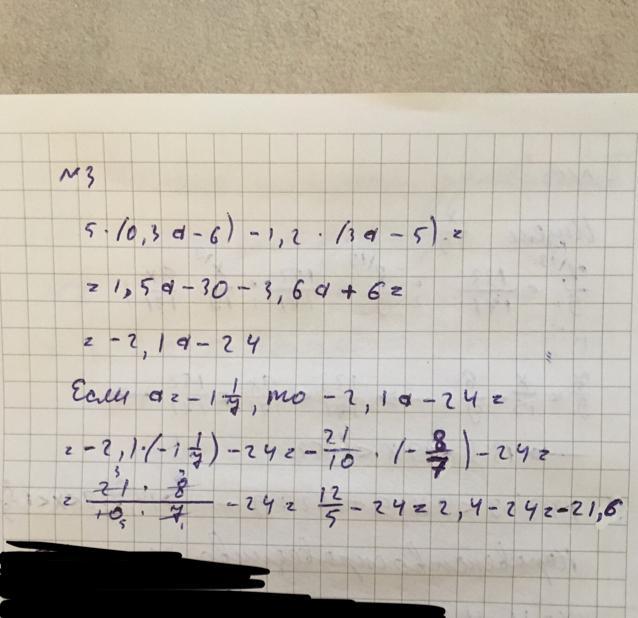 №3
5·(0,3a-6)-1,2·(3a-5)=
=1,5a-30-3,6a+6=
=-2,1a-24
Если a=-1 1/7, то -2,1a-24=
=-2,1·(-1 1/7)-24=-21/10·(-8/7)-24=
=21·8/10·7-24=12/5-24=2,4-24=-21,6